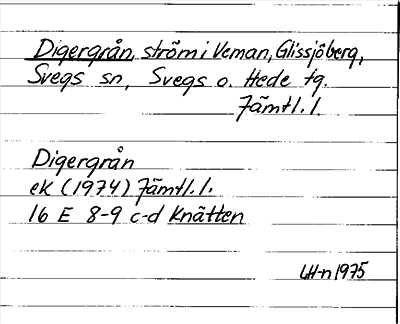 Digergrån, ström i Veman, Glissjöberg,
Svegs sn, Svegs o. Hede tg.
Jämtl. l.
Digergrån
ek (1974) Jämtl. l.
16 E 8-9 c-d Knätten
LH-n 1975